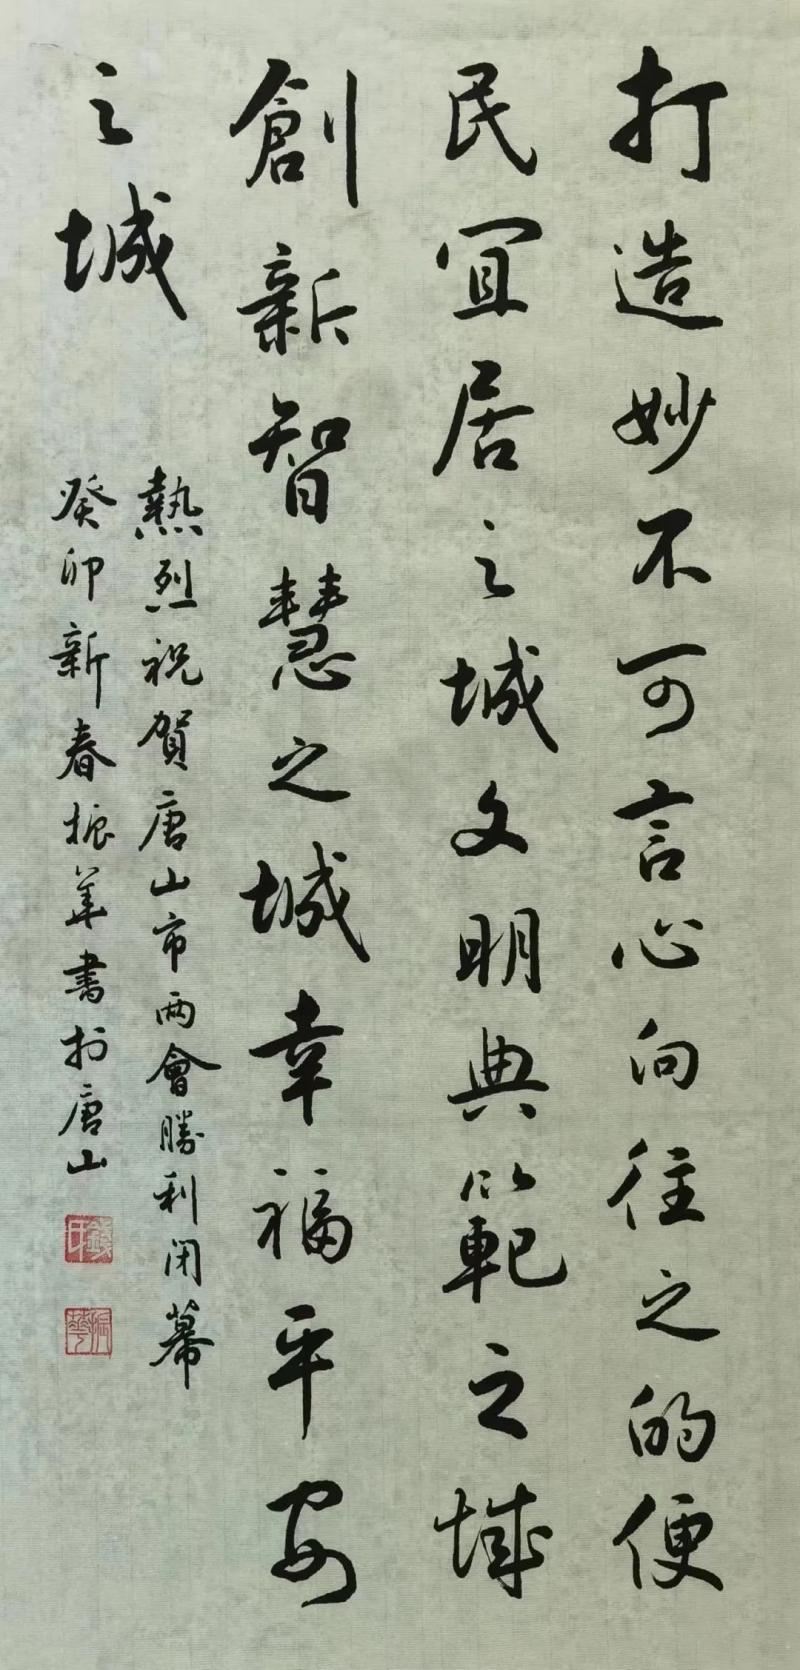 打造妙不可言心向往之的便
民宜居之城文明典範之城
創新智慧之城幸福平安
之城
熱烈祝賀唐山市兩會勝利闭幕
癸卯新春振華書於唐山
錢印
振華